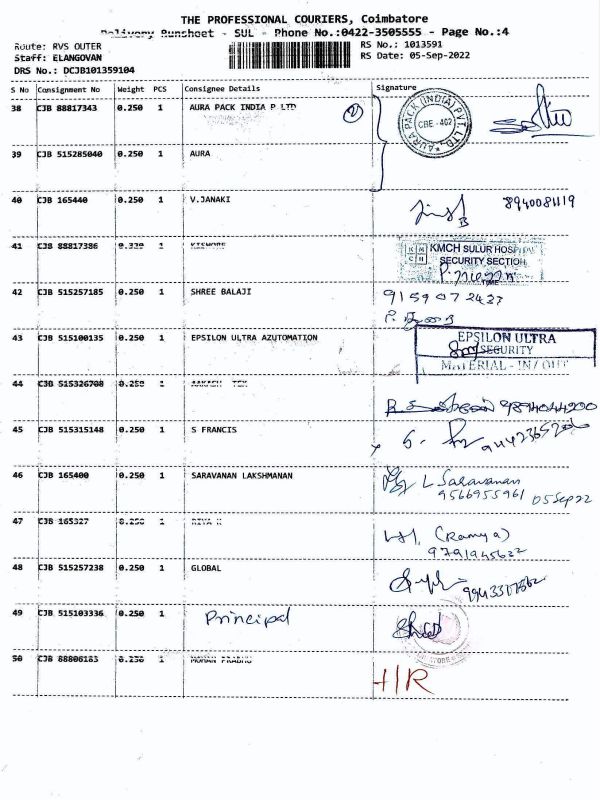 THE PROFESSIONAL COURIERS, Coimbatore
Delivery Runsheet - SUL - Phone No.:0422-3505555 - Page No.:4
Route: RVS OUTER
RS No.: 1013591
Staff: ELANGOVAN
RS Date: 05-Sep-2022
DRS No.: DCJB101359104
S No Consignment No Weight PCS Consignee Details Signature
38 CJB 88817343 0.250 1 AURA PACK INDIA P LTD
AURA PACK (INDIA) PVT. LTD.
CBE - 402
39 CJB 515285040 0.250 1 AURA
40 CJB 165440 0.250 1 V.JANAKI
41 CJB 88817386 0.320 1 KISHORE
KMCH SULUR HOSPITAL
SECURITY SECTION
TIME
42 CJB 515257185 0.250 1 SHREE BALAJI
9159072427
43 CJB 515100135 0.250 1 EPSILON ULTRA AZUTOMATION
EPSILON ULTRA
SECURITY
MATERIAL - IN / OUT
44 CJB 515326708 0.250 1 AAKASH TEX
45 CJB 515315148 0.250 1 S FRANCIS
46 CJB 165400 0.250 1 SARAVANAN LAKSHMANAN
L Saravanan
9566955961 05Sep22
47 CJB 165327 0.250 1 RIYA K
(Ramya)
48 CJB 515257238 0.250 1 GLOBAL
49 CJB 515103336 0.250 1 Principal
50 CJB 88806183 0.250 1 MOHAN PRABHU